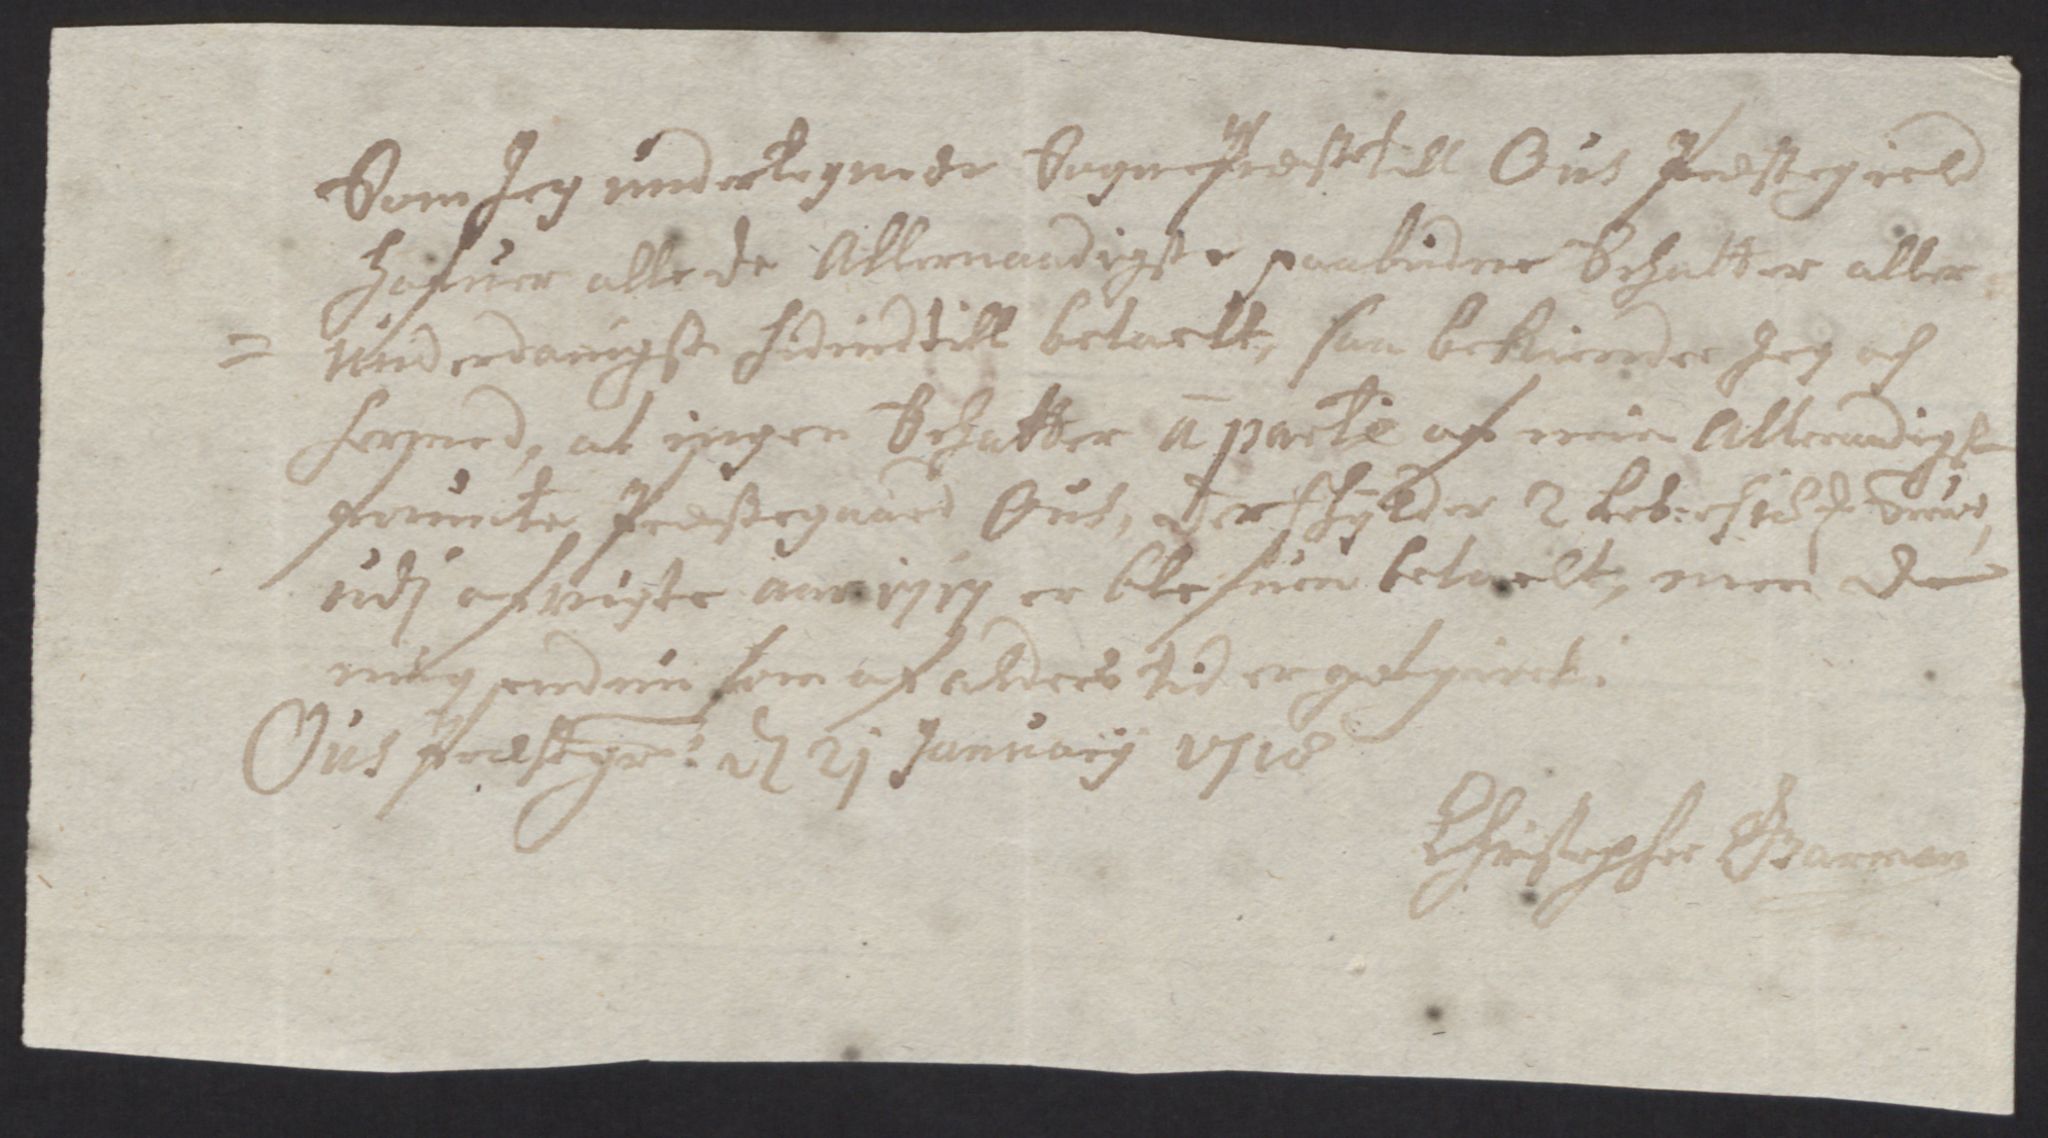 Som Jeg undertegnede SognePræst till Ous Præstegield
hafuer alle de Allernaadigste paabudne Schatter aller
= underdanigst hidindtill betaelt, saa bekiender Jeg och
hermed, at ingen Schatter a parte af min Allernadigste
forundte Præstegaard Ous, der schylder 2
udj afvigte aar 1717 er blefuen betaelt, men den
mig endnu som af alders tid er
Ous Præstegr: dj 21 January 1718
Christopher Garman